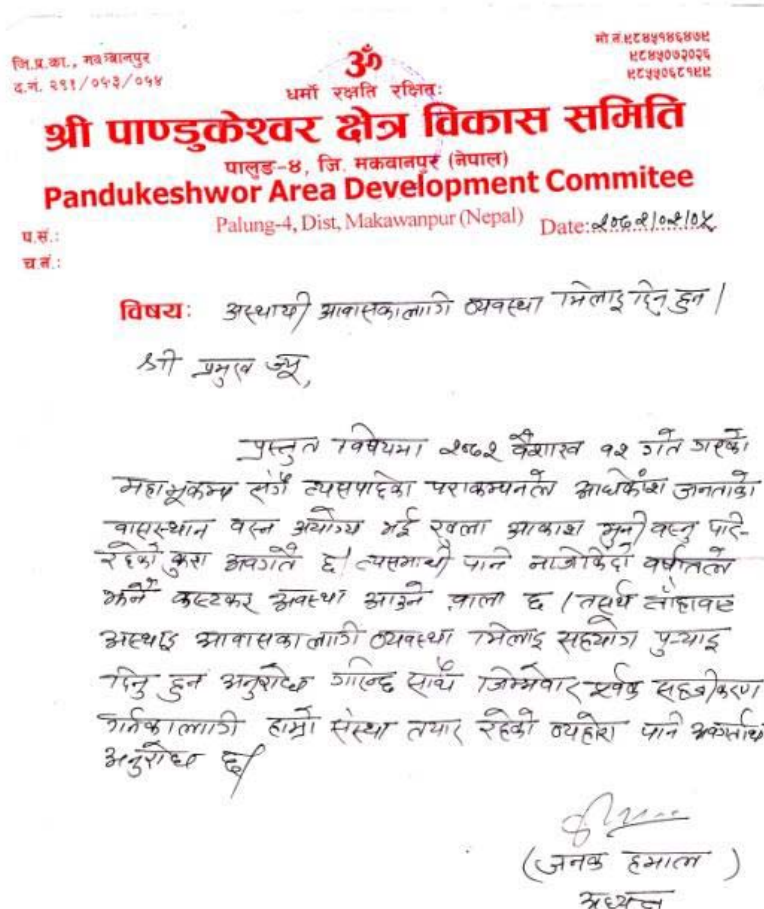 जि.प्र.का., मकवानपुर
द.नं. २११/०५३/०५४
मो.नं.९८४५१४६४७९
९८४५०७२०२६
९८५५०६८१९९
ॐ
धर्मो रक्षति रक्षितः
श्री पाण्डुकेश्वर क्षेत्र विकास समिति
पालुङ-४, जि. मकवानपुर (नेपाल)
Pandukeshwor Area Development Commitee
Palung-4, Dist, Makawanpur (Nepal)
Date: २०७२/०२/०५
प.सं.:
च.नं.:
विषय: अस्थायी आवासकालागि व्यवस्था मिलाइ दिनु हुन।
श्री प्रमुख ज्यू,
प्रस्तुत विषेयमा २०७२ वैशाख १२ गते गएको
महाभूकम्प संगै त्यसपछिका पराकम्पनले अधिकांश जनताको
वासस्थान वस्न अयोग्य भई खुला आकाश मुनी वस्नु परि-
रहेको कुरा अवगतै छ। त्यसमाथी पनि नजिकिदो वर्षातले
झनै कस्टकर अवस्था आउने वाला छ। तसर्थ तँहावाट
अस्थाइ आवासकालागि व्यवस्था मिलाइ सहयोग पुर्‍याइ
दिनु हुन अनुरोध गरिन्छ साथै जिम्मेवार पूर्वक सहजीकरण
गर्नकालागि हाम्रो संस्था तयार रहेको व्यहोरा पनि अवगतार्थ
अनुरोध छ।
(जनक हमाल)
अध्यक्ष